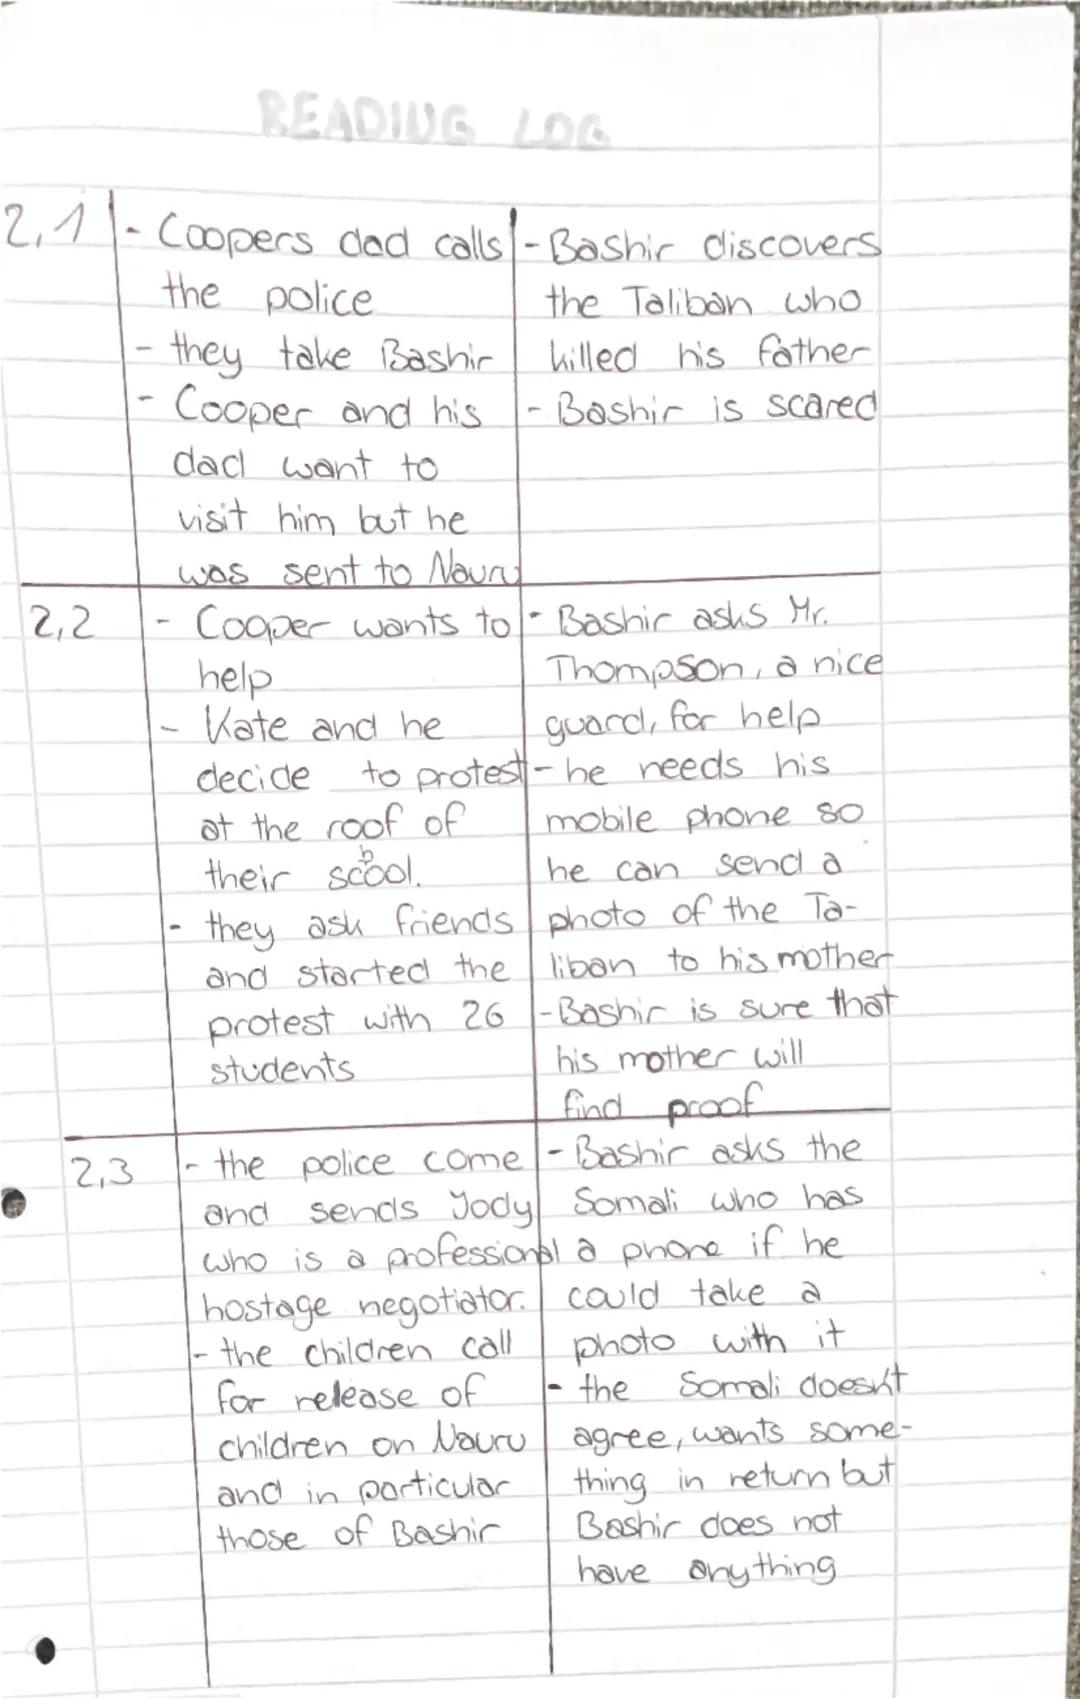 READING LOG
2,1
- Coopers dad calls
the police
- they take Bashir
- Cooper and his
dad want to
visit him but he
was sent to Nauru
- Bashir discovers
the Taliban who
killed his father
- Bashir is scared
2,2
- Cooper wants to
help
- Kate and he
decide to protest
at the roof of
their school.
- they ask friends
and started the
protest with 26
students
- Bashir asks Mr.
Thompson, a nice
guard, for help
- he needs his
mobile phone so
he can send a
photo of the Ta-
liban to his mother
- Bashir is sure that
his mother will
find proof
2,3
- the police come
and sends Jody
who is a professional
hostage negotiator.
- the children call
for release of
children on Nauru
and in particular
those of Bashir
- Bashir asks the
Somali who has
a phone if he
could take a
photo with it
- the Somali doesn't
agree, wants some-
thing in return but
Bashir does not
have anything